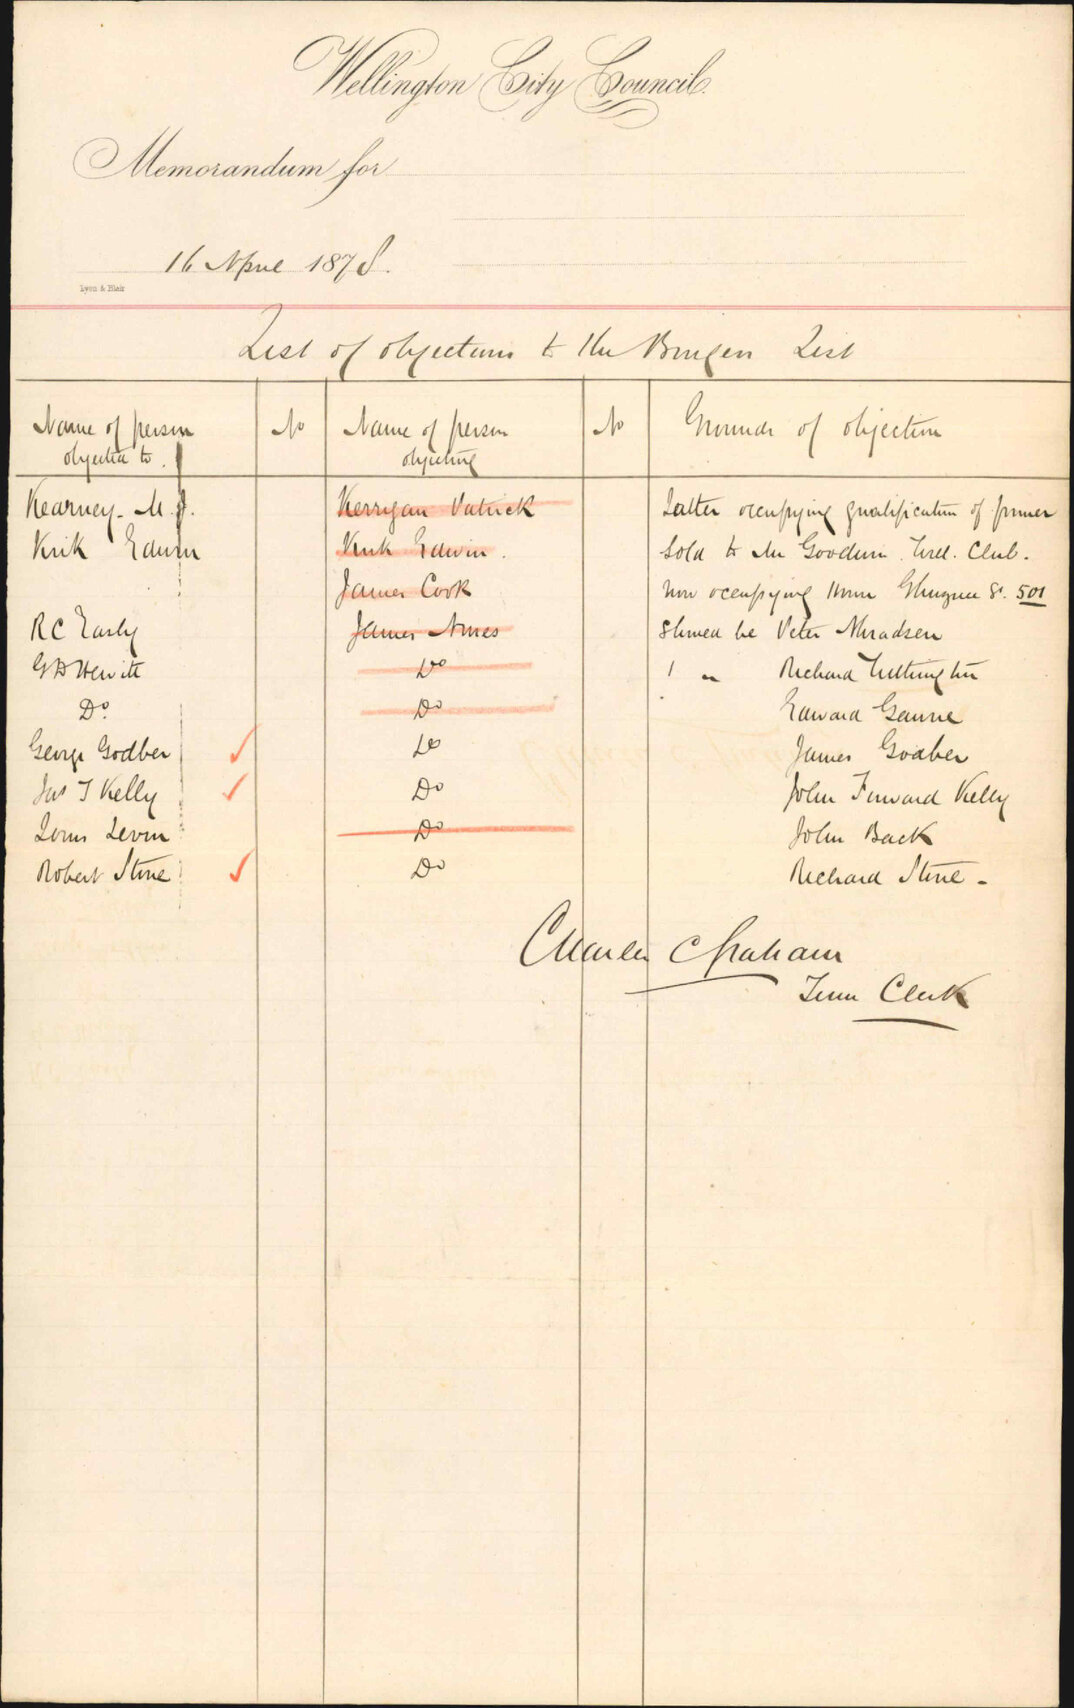 Wellington City Council.
Memorandum for
16 April 1878.
Lyon & Blair
List of objections to the Burgess List
Name of person objected to. No Name of person objecting No Grounds of objection
Kearney. M. J. Kerrigan Patrick Latter occupying qualification of former
Kirk Edwin Kirk Edwin. Sold to Mr Goodwin. Well. Club.
James Cook Now occupying House Ghuznee St. 501
R C Early James Ames Should be Peter
G D Hewitt Do " Richard
Do. Do Edward
George Godber Do James Godber
Jas T Kelly Do John Kelly
Louis Levin Do John Back
Robert Stone Do Richard Stone -
Charles C Graham
Town Clerk